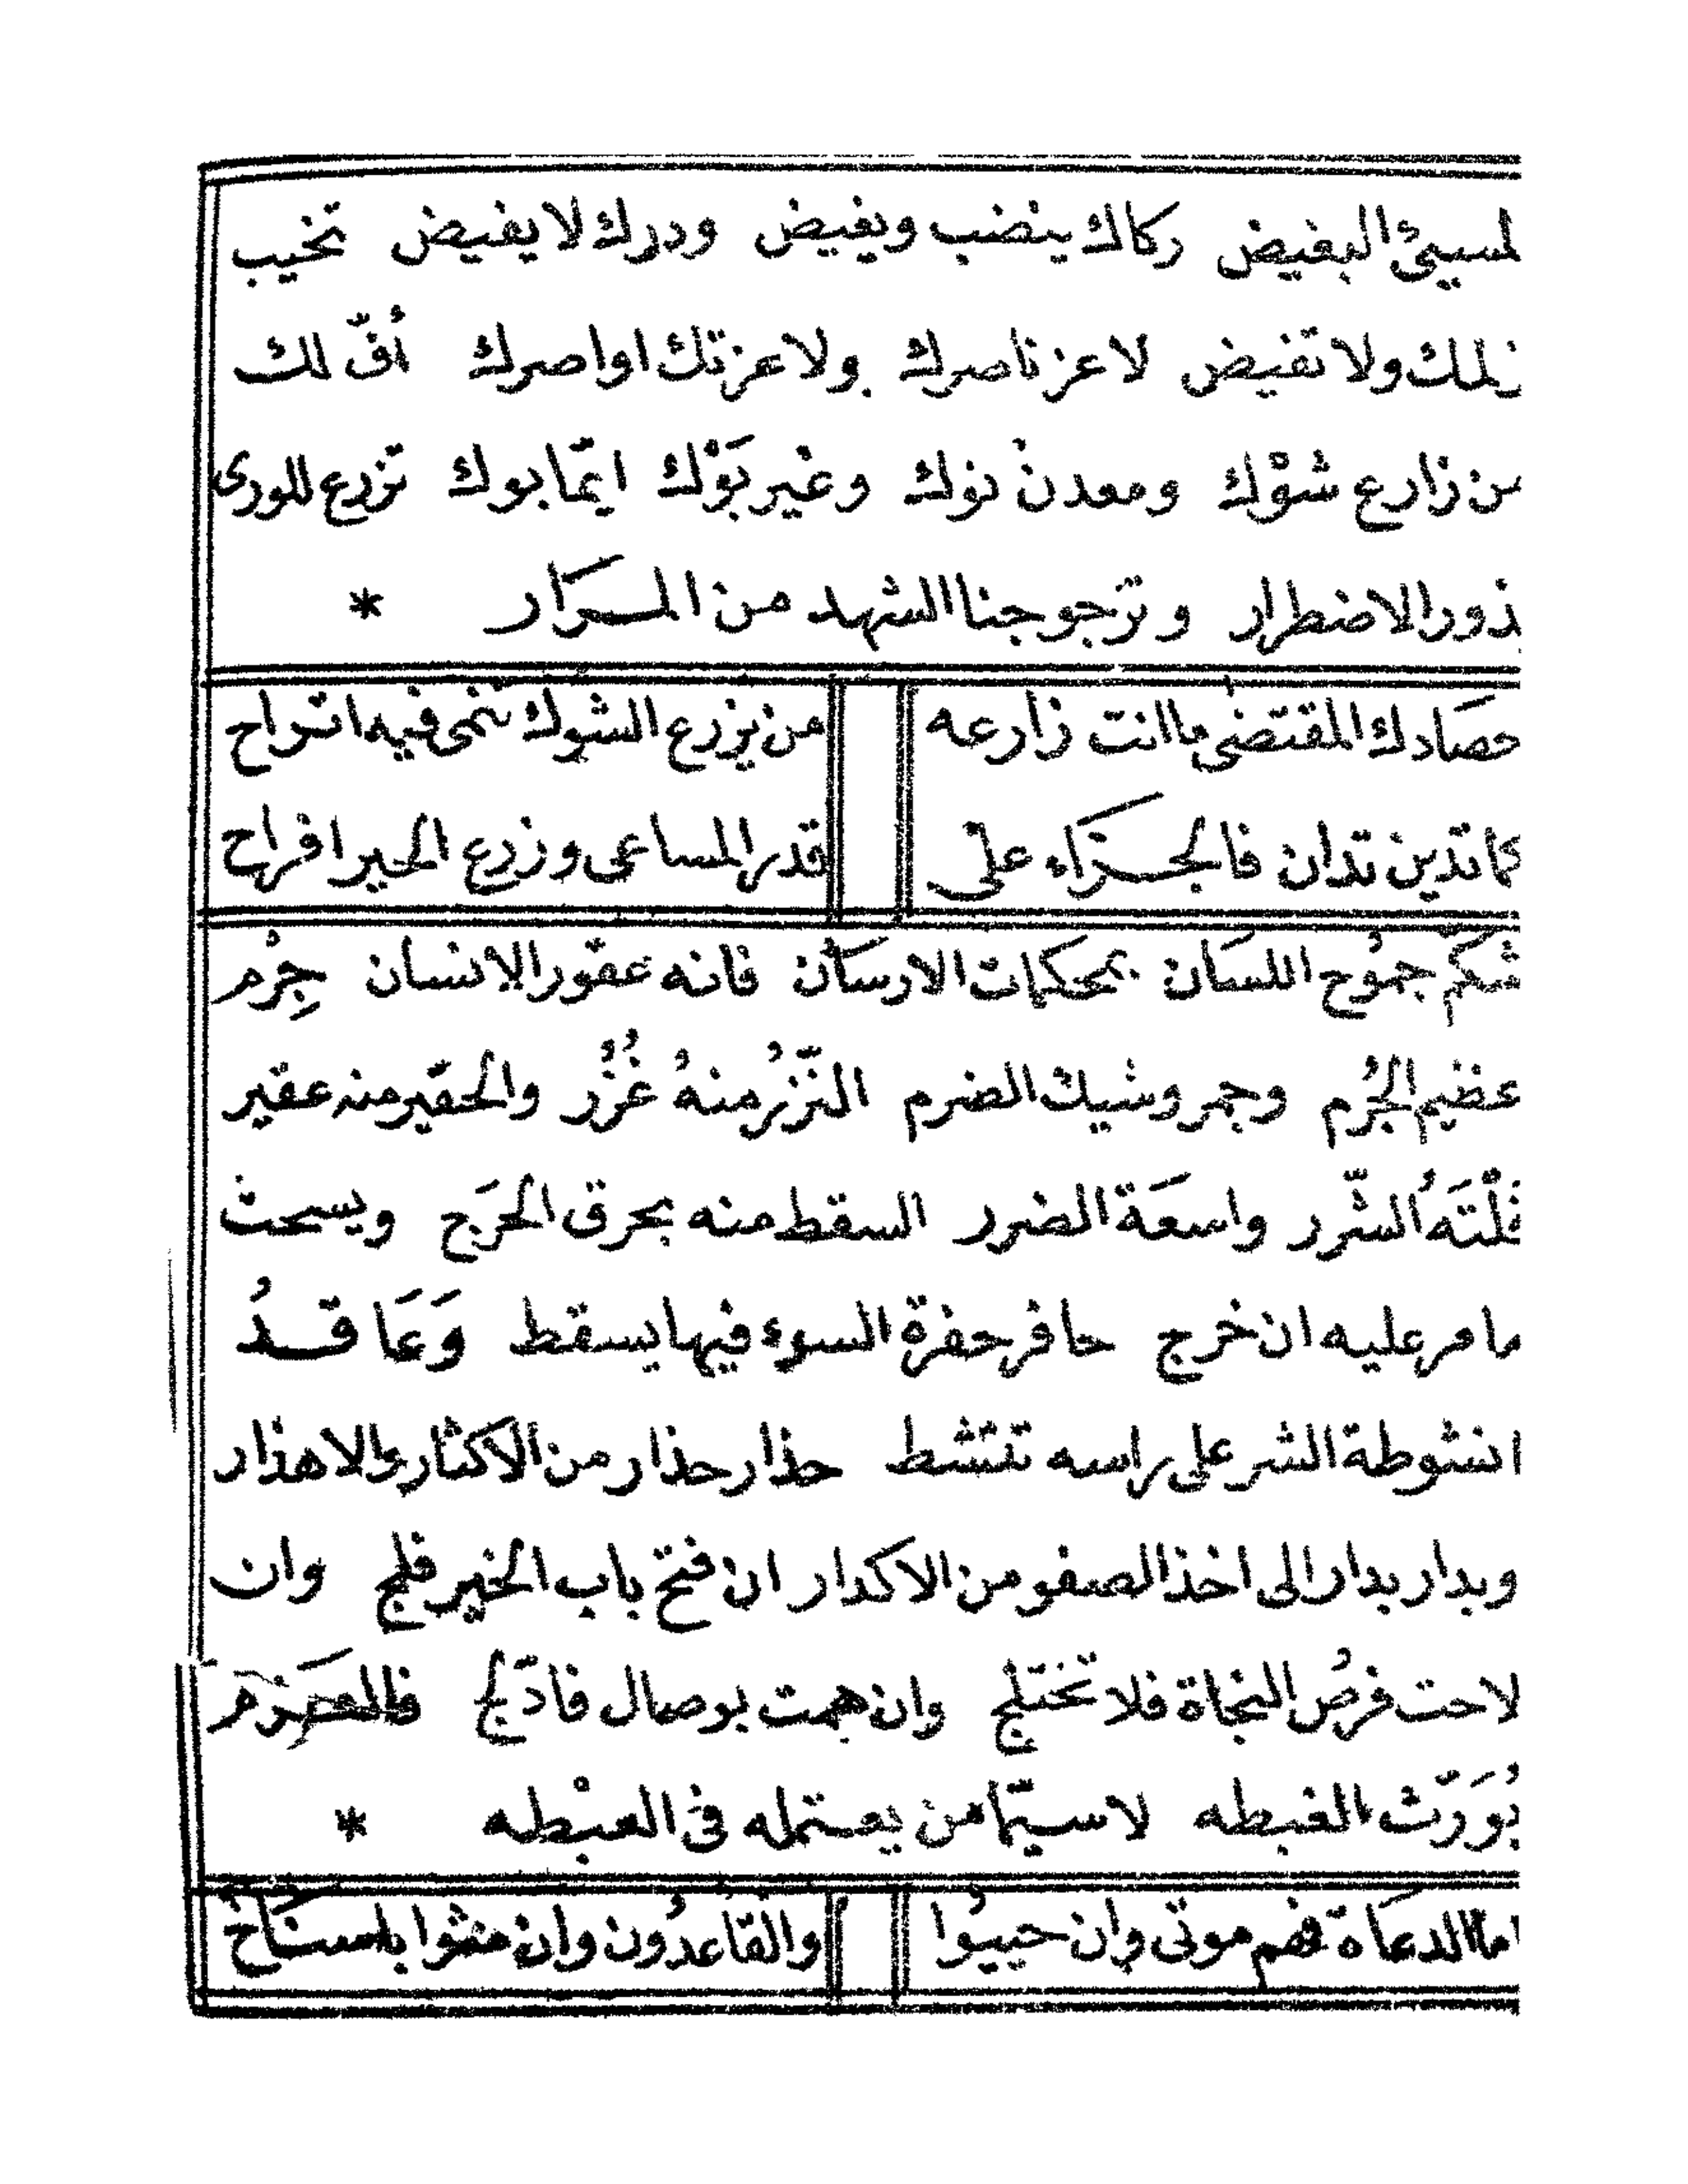 لمسيئ البغيض ركاك ينضب ويغيض ودرك لا يفيض تخيب
ولا تفيض لا عز ناصرك ولا عزتك اواصرك أفّ لك
من زارع شوْك ومعدن نوك وغير بَوْك ايّما بوك تزرع للورى
بذور الاضطرار وترجو جنا الشهد من المرَار *
حصَادك المقتضى ما انت زارعه من يزرع الشوك تنمى فيه اتراح
كما تدين تدان فالجزَاء على قدر المساعى وزرع الخير افراح
شكم جمُوح اللسَان بمحكمات الارسَان فانه عقور الانسان جِرْم
عظيم الجُرم وجمر وشيك الضرم النّزْرُ منهُ غُزُر والحقير منه عقير
فلْتَهُ الشّرر واسعَة الضرر السقط منه بحرق الحَرَج ويسحت
ما مر عليه ان خرج حافر حفرة السوء فيها يسقط وَعَاقدُ
انشوطة الشر على راسه تنتشط حذار حذار من الاكثار والاهذار
وبدار بدار الى اخذ الصفو من الاكدار ان فتح باب الخير فلج وان
لاحت فرصُ النجاة فلا تختلج وان همت بوصال فادّلج فالعَزم
يُوَرّث الغبطه لاسيّما من يعتمله فى العبْطه *
اما الدعَاة فهم موتى وان حييُوا والقاعدُون وان مشوا باسنَاخ